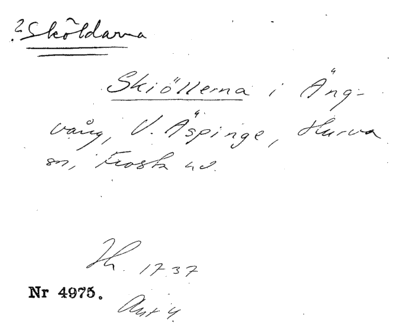 ? Sköldarna
Skiöllerna i Äng-
vång, V. Äspinge, Hurva
sn, Frosta hd.
Hh. 1737
Nr 4975.
Akt 4.